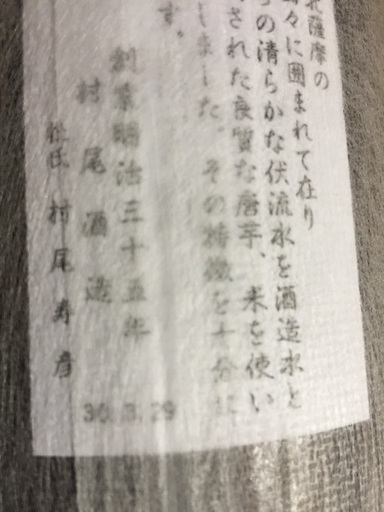 北薩摩の
々に囲まれて在り
の清らかな伏流水を酒造水と
された良質な唐芋、米を使い
しました。その特徴を十分
す。
創業明治三十五年
村尾酒造
杜氏 村尾寿彦
30.3.29